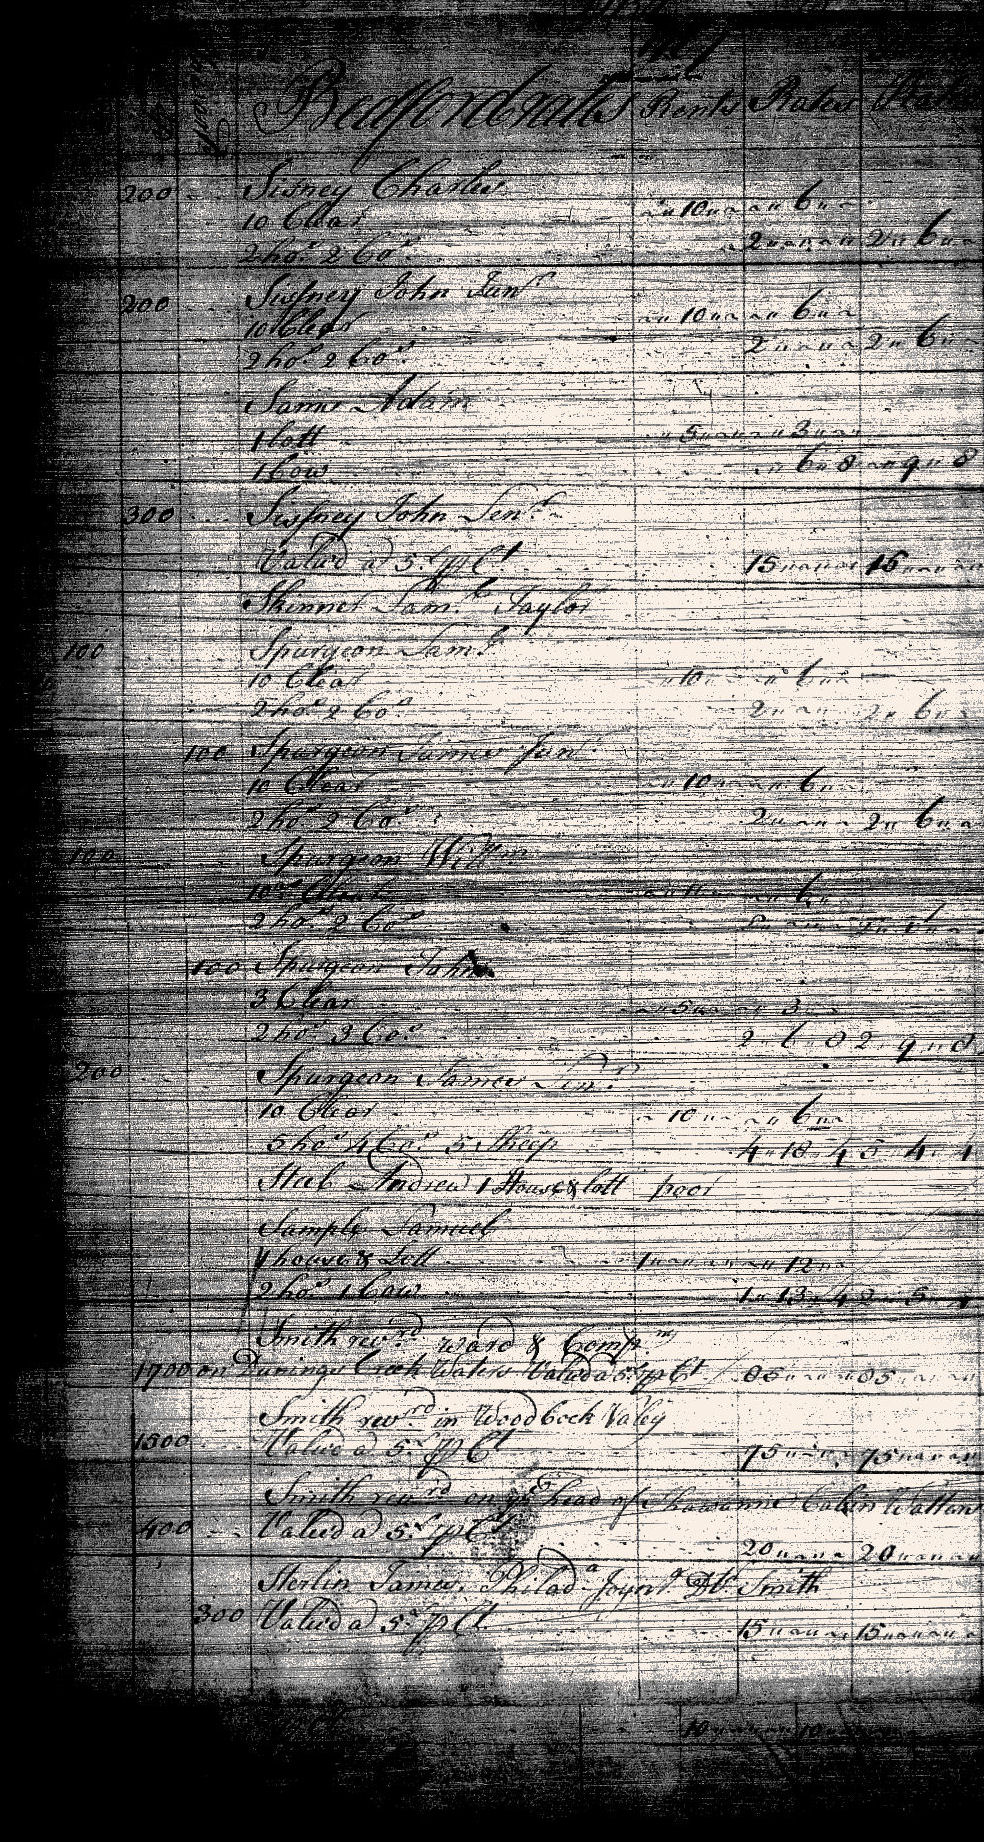 Bedford rates Rents Rates
200 Sisney Charles
10 Clear " 10 " " 6 "
2 hos 2 Cos 2 " " 2 " 6 "
200 Sissney John Junr
10 Clear " 10 " " 6 "
2 hos 2 Cos 2 " " 2 " 6 "
Adam
1 lott " 5 " " 3 "
1 Cow " 6 " 8 " 9 " 8
300 Sissney John Senr
Valued a 5£ p Ct 15 " " 15 " "
Skinner Saml Taylor
100 Spurgeon Saml
10 Clear " 10 " " 6 "
2 hos 2 Cos 2 " " 2 " 6 "
100 Spurgeon James Junr
10 Clear " 10 " " 6 "
2 hos 2 Cos 2 " " 2 " 6 "
100 Spurgeon Willm
10 Clear " 6 "
2 hos 2 Cos
100 Spurgeon John
3 Clear " 5 " " 3 "
2 hos 3 Cos 2 " 6 " 8 2 " 9 " 8
200 Spurgeon James Senr
10 Clear " 10 " " 6 "
5 hos 4 Cos 5 Sheep 4 " 18 " 4 5 " 4 " 4
Andrew 1 House & lott poor
Sample Samuel
1 house & Lott 1 " " " 12 "
2 hos 1 Cow 1 " 13 " 4 2 " 5 " 4
Smith revrd ward & Compny
1700 on Dunings Creek Waters Valued a 5£ p Ct 85 " " 85 " "
Smith revrd in Woodbock Valey
1500 Valued a 5£ p Ct 75 " " 75 " "
Smith revrd on ye head of Shawanne Cabin Watters
400 Valued a 5£ p Ct
20 " " 20 " "
Sterlin James Philada Joynr Dr Smith
300 Valued a 5£ p Ct 15 " " 15 " "
10 " " 10 " "